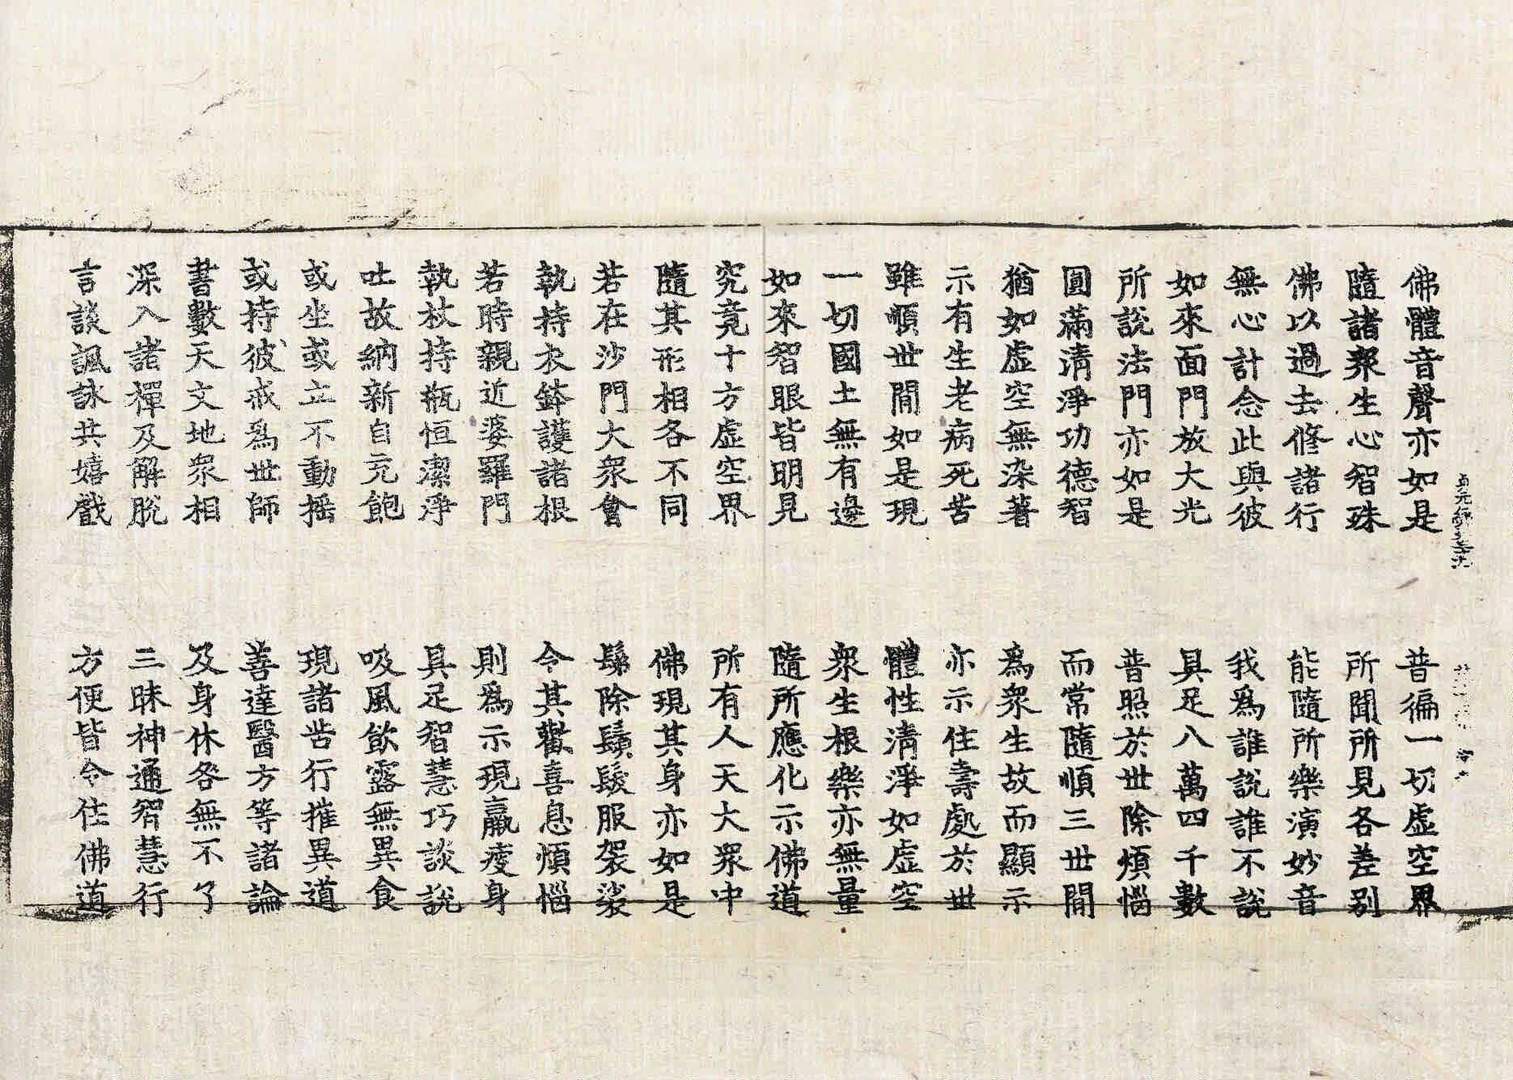 佛體音聲亦如是　普徧一切虛空界
隨諸衆生心智殊　所聞所見各差别
佛以過去修諸行　能隨所樂演妙音
無心計念此與彼　我爲誰說誰不說
如來面門放大光　具足八萬四千數
所說法門亦如是　普照於世除煩惱
圓滿清淨功德智　而常隨順三世間
猶如虛空無染著　爲衆生故而顯示
示有生老病死苦　亦示住壽處於世
雖順世間如是現　體性清淨如虛空
一切國土無有邊　衆生根樂亦無量
如來智眼皆明見　隨所應化示佛道
究竟十方虛空界　所有人天大衆中
隨其形相各不同　佛現其身亦如是
若在沙門大衆會　鬀除鬚髮服袈裟
執持衣鉢護諸根　令其歡喜息煩惱
若時親近婆羅門　則爲示現羸瘦身
執杖持瓶恒潔淨　具足智慧巧談說
吐故納新自充飽　吸風飲露無異食
或坐或立不動搖　現諸苦行摧異道
或持彼戒爲世師　善達醫方等諸論
書數天文地衆相　及身休咎無不了
深入諸禪及解脫　三昧神通智慧行
言談諷詠共嬉戲　方便皆令住佛道